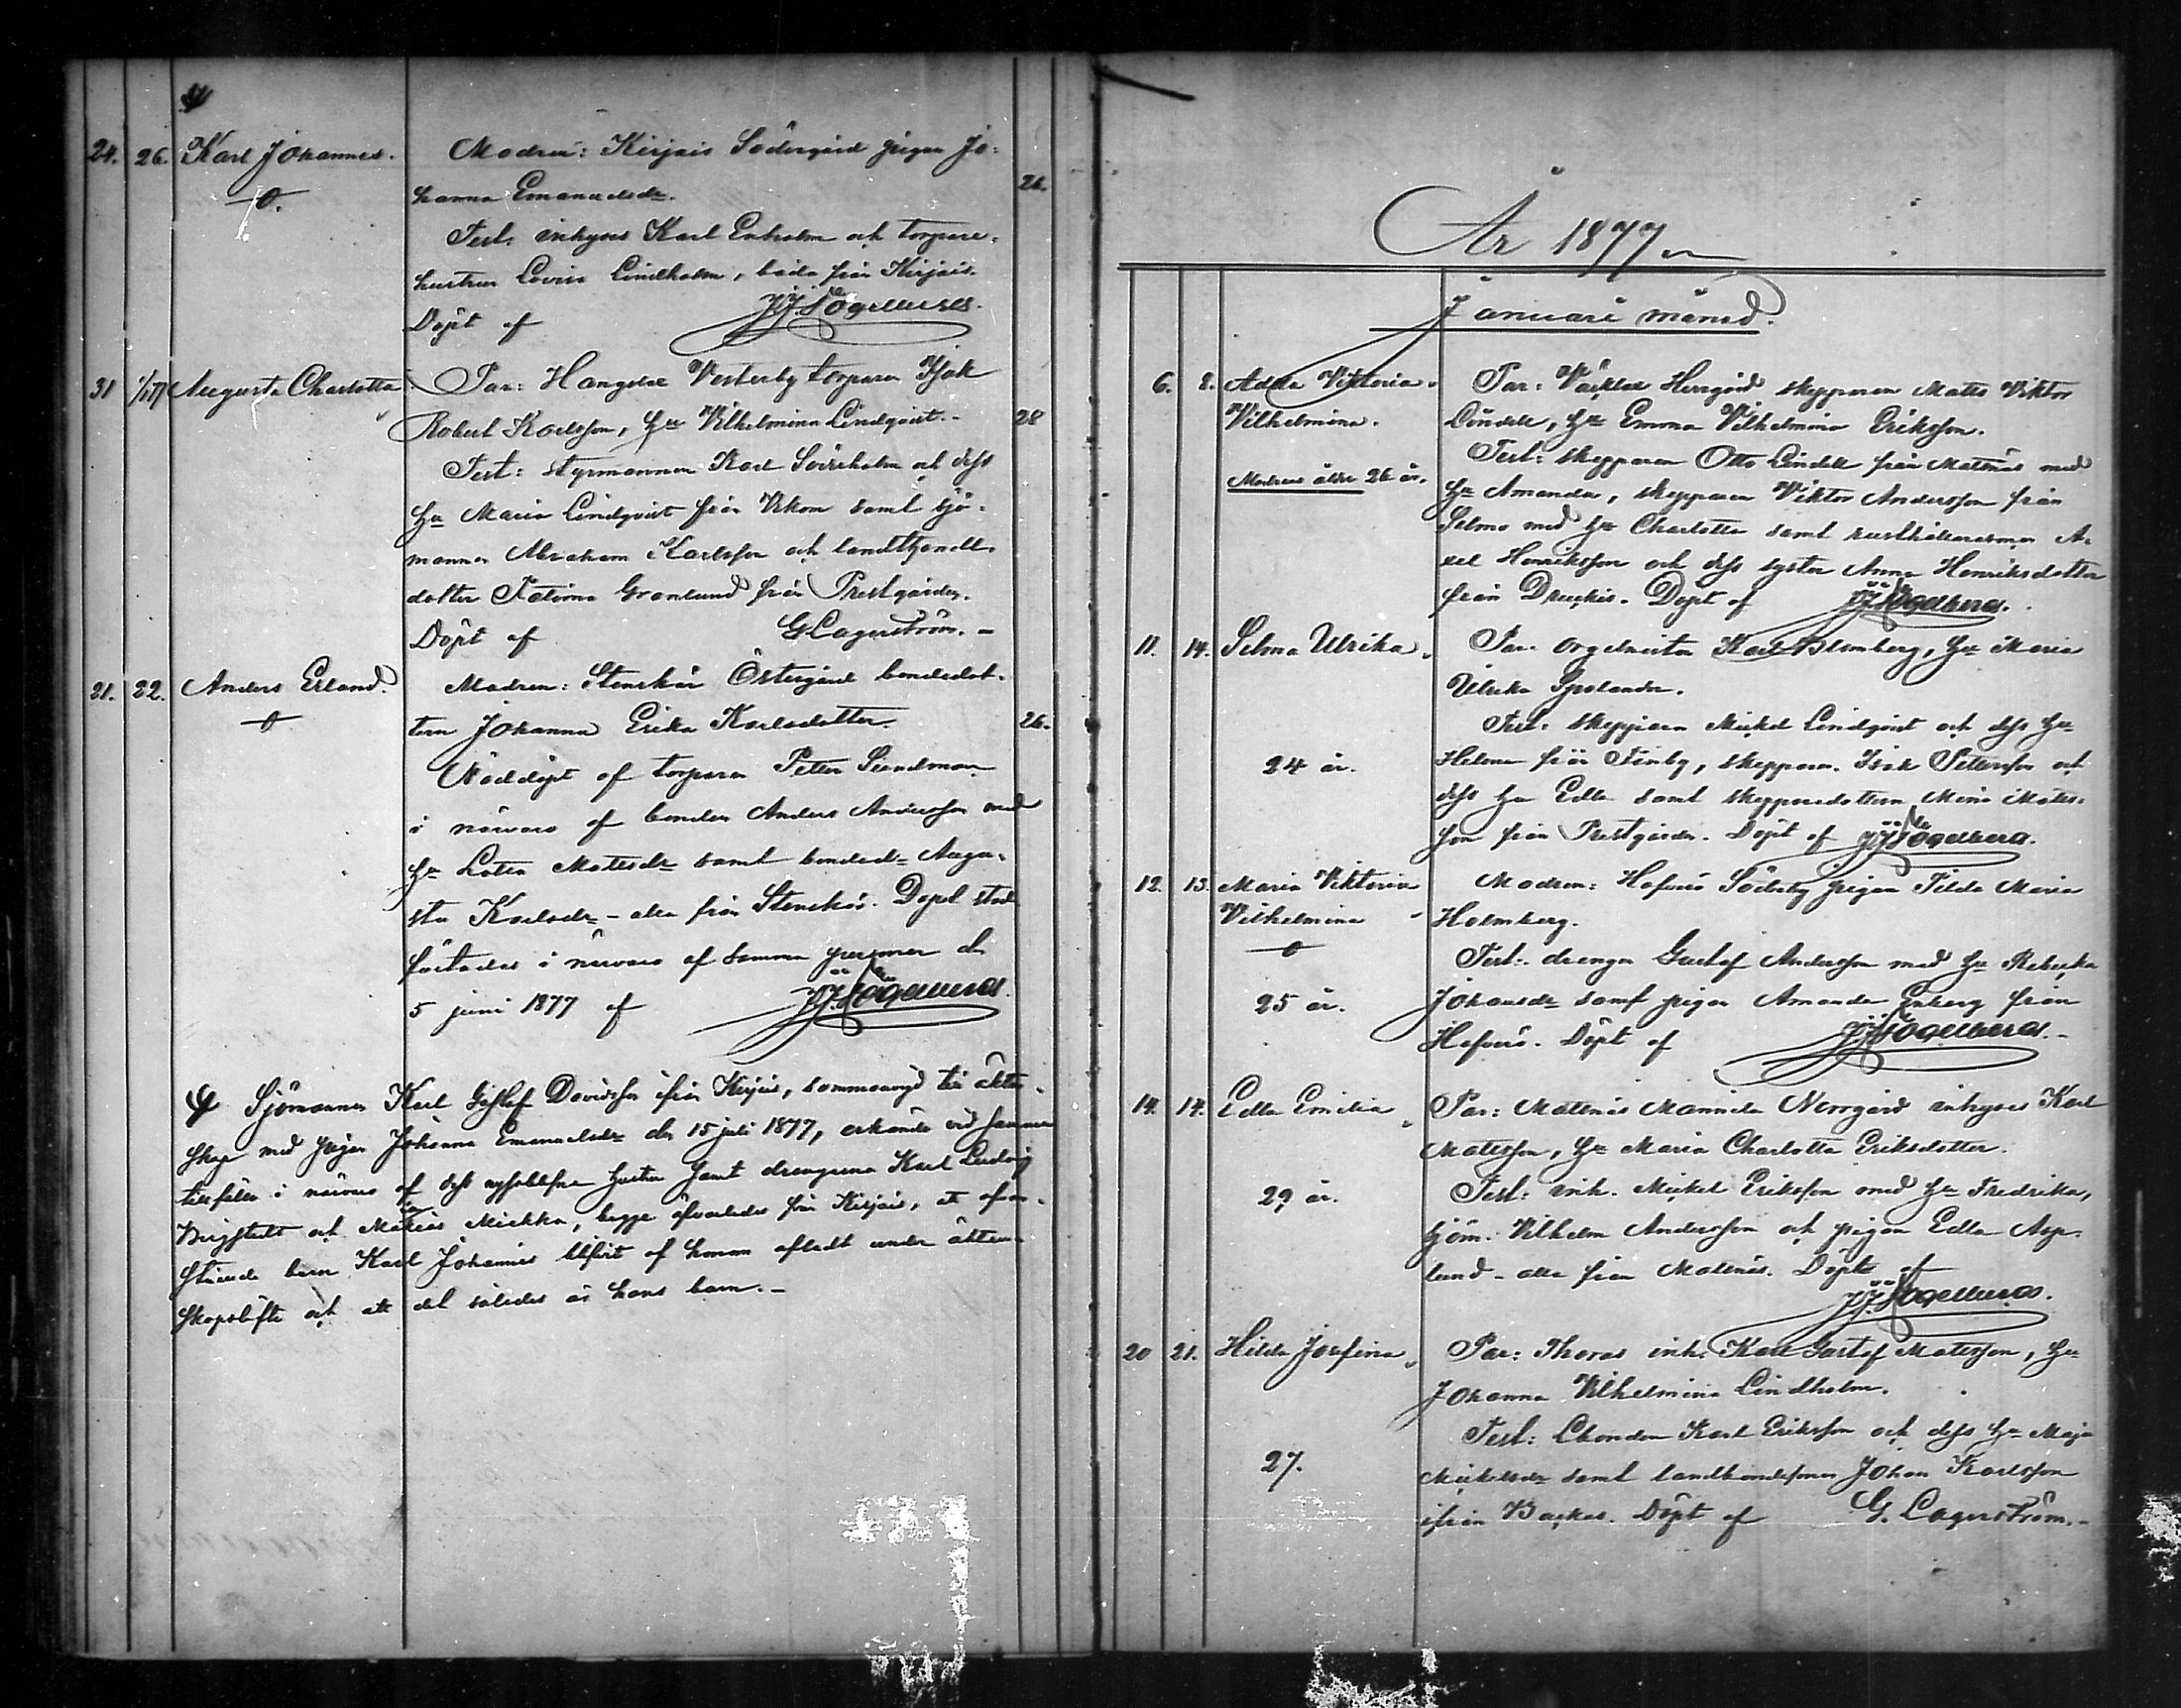 24. 26. Karl Johannes. Modren: Kirjais Södergård pigan Jo-
hanna Emanuelsdr. 26.
Test. inhyses Karl Enholm och torpare-
hustrun Lovisa Lindholm, båda från Kirjais.
Döpt af JJ Fogelberg.
31 1/1 77 Augusta Charlotta Par: Hangslax Vesterby torparen Isak
Robert Karlsson, Hu Vilhelmina Lindqvist.- 28
Test: styrmannen Karl Söderholm och dess
Hu Maria Lindqvist från Vikom samt sjö-
mannen Abraham Karlsson och
dotter Granlund från Prestgården.
Döpt af G Lagerström.-
21. 22. Anders Erland. Modren: Stenskär Östergård bondedot-
tern Johanna Erika Karlsdotter. 26.
Nöddöpt af torparen Petter Sundman
i närvaro af bonden Anders Andersson med
Hu Lovisa Matsdr samt bonded= Augu-
sta Karlsdr - alla från Stenskär. Dopet stad-
fästades i närvaro af samma personer den
5 juni 1877 af JJ Fogelberg.
Sjömannen Karl Gustaf Davidsson från Kirjais, sammanvigd till äkten-
skap med pigan Johanna Emanuelsdr den 15 juli 1877, erkände vid samma
tillfälle i närvaro af dess hustru samt drängarna Karl Ludvig
Bergstedt och Matias Mickka, begge från Kirjais, att ofvan-
stående barn Karl Johannes blifvit af honom afladt under äkten-
skapslöfte och att det således är hans barn.-
År 1877
Januari månad.
6. 8. Adda Viktoria Par: Herrgård skepparen Mats Viktor
Vilhelmina. Lindell, Hu Emma Vilhelmina Eriksson.
Modrens ålder 26 år. Test: skepparen Otto Lindell från Malmäs med
Hu Amanda, skepparen Viktor Andersson från
Selmo med Hu Charlotta samt rusthållaresonen A-
xel Henriksson och dess syster Anna Henriksdotter
från Druckis. Döpt af JJ Fogelberg.
11. 14. Selma Ulrika Par. orgelnisten Karl Blomberg, Hu Maria
Ulrika Sjölander.
Test: skepparen Mickel Lindqvist och dess Hu
24 år. Helena från Finby, skepparen Isak Pettersson och
dess Hu Edla samt skeppardottern Mina Mats-
son från Prestgården. Döpt af JJ Fogelberg.
12. 13. Maria Viktoria Modren: Söderby pigan Tilda Maria
Vilhelmina Holmberg.
Test: drängen Gustaf Andersson med Hu Rebecka
25 år. Johansdr samt pigan Amanda Enberg från
Döpt af JJ Fogelberg.-
14. 17. Edla Emilia Par: Malmäs Mannila Norrgård inhyses Karl
Matsson, Hu Maria Charlotta Eriksdotter.
29 år. Test: inh. Mickel Eriksson med Hu Fredrika,
sjöm. Vilhelm Andersson och pigan Edla Asp-
lund - alla från Malmäs. Döpt af
JJ Fogelberg.
20 21. Hilda Josefina Par: Thoras inh. Karl Gustaf Matsson, Hu
Johanna Vilhelmina Lindholm.
Test: Lbonden Karl Eriksson och dess Hu Maja
27. Mickelsdr samt landbondesonen Johan Karlsson
ifrån Backas. Döpt af G. Lagerström.-